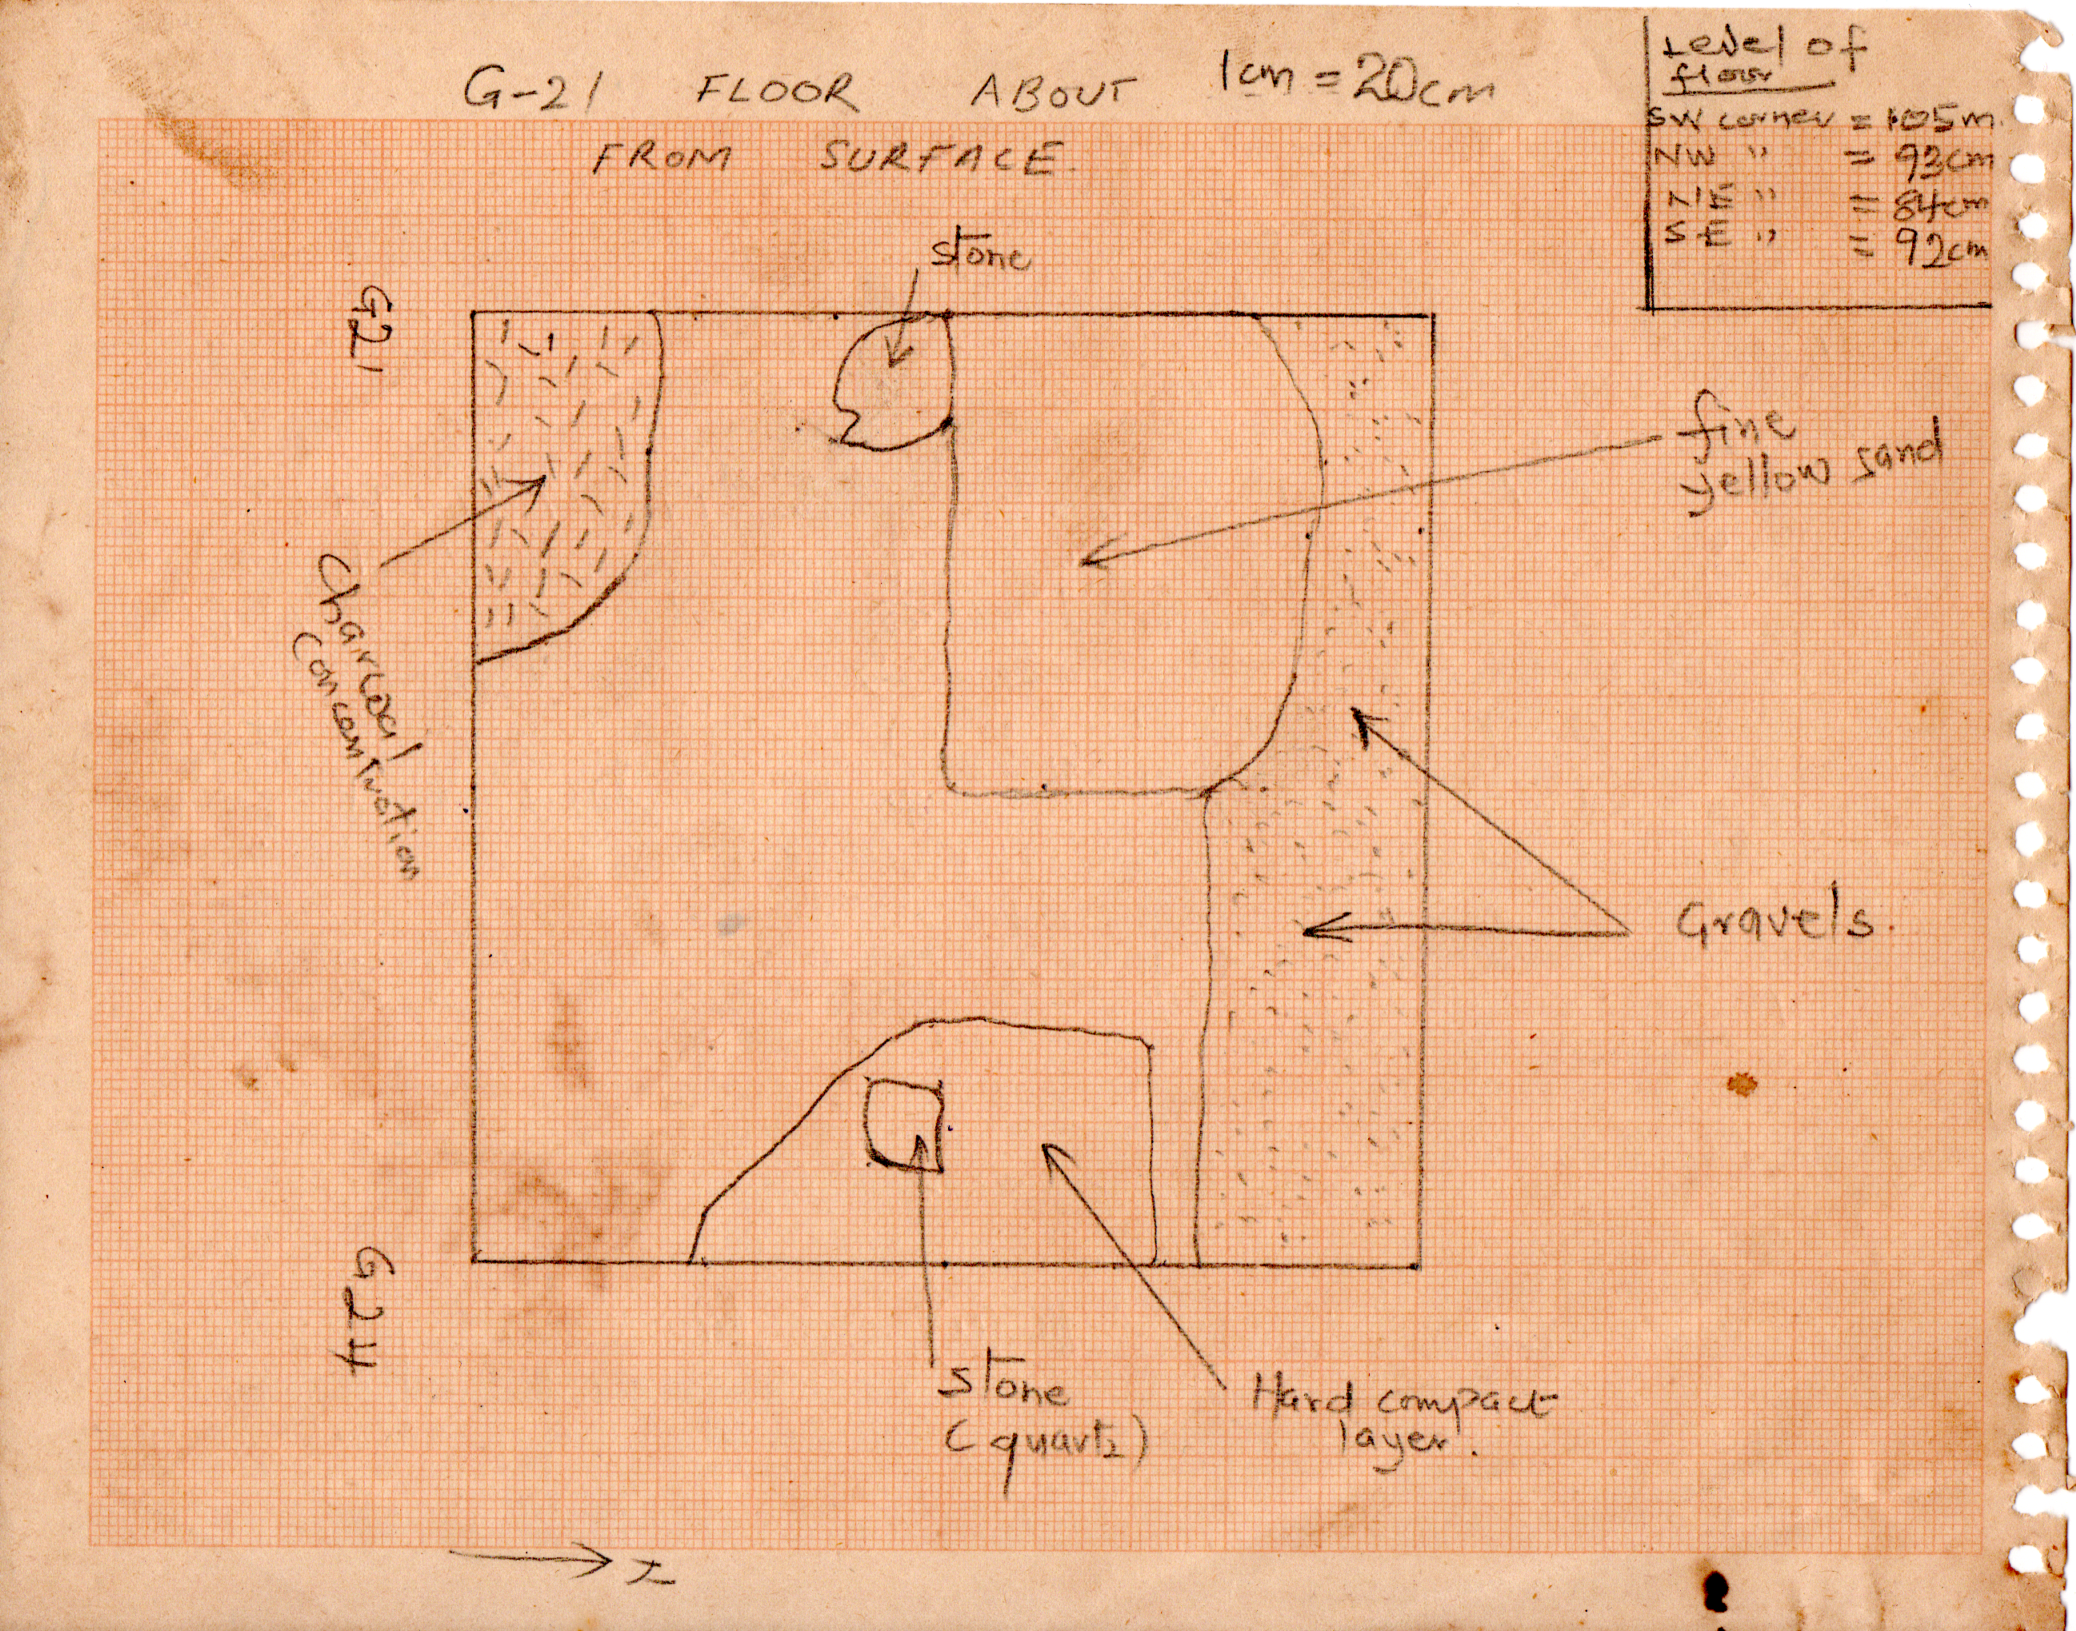 G-21 FLOOR ABOUT 1cm = 20cm
FROM SURFACE.
Level of
floor
SW corner = 1.05m.
NW " = 93cm
NE " = 84cm
SE " = 92cm
stone
G21
fine
yellow sand
Chaircoal
Concentration
Gravels.
G24
stone
(quartz)
Hard compact
layer.
N